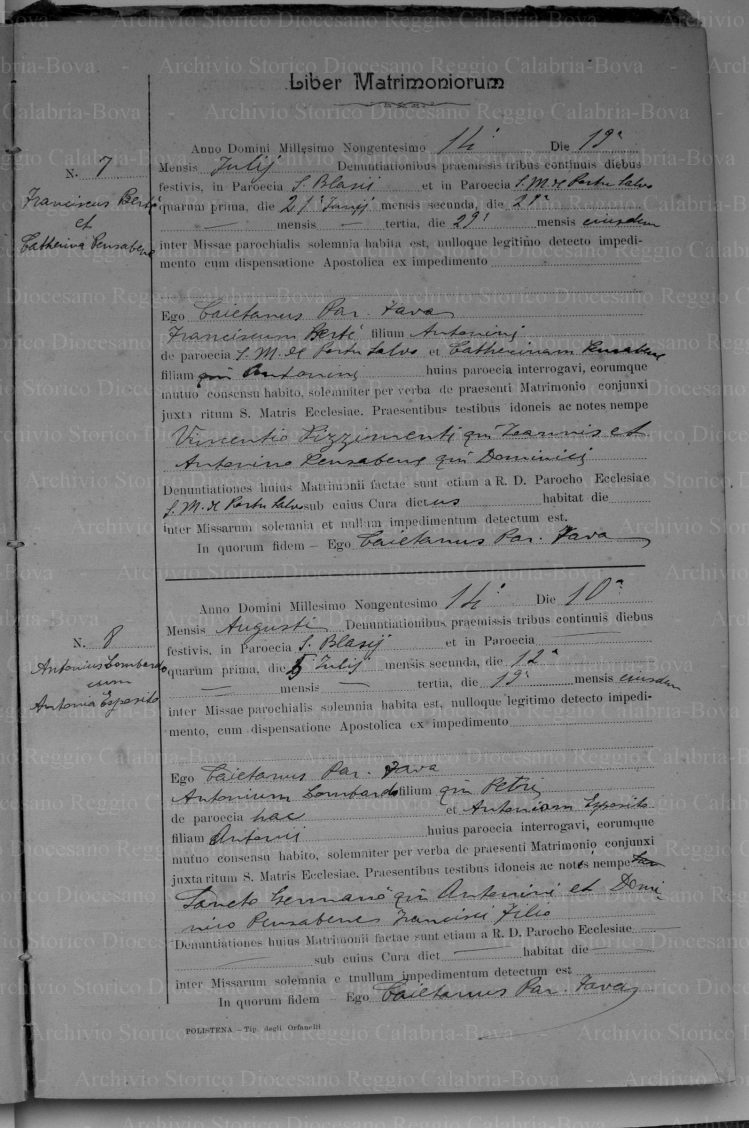 Liber Matrimoniorum
N. 7
Franciscus Berté
et
Catherina Pensabene
Anno Domini Millesimo Nongentesimo 14 Die 19ª
Mensis Julij Denuntiationibus praemissis tribus continuis diebus
festivis, in Paroecia S. Blasij et in Paroecia S. M. de Portu Salvo
quarum prima, die 21 Junij mensis secunda, die 28ª
— mensis — tertia, die 29ª mensis eiusdem
inter Missae parochialis solemnia habita est, nulloque legitimo detecto impedi-
mento cum dispensatione Apostolica ex impedimento
Ego Caietanus Par. Fava
Franciscum Berté filium Antonini
de paroecia S. M. de Portu Salvo et Catherinam Pensabene
filiam qm Antonini huius paroecia interrogavi, eorumque
mutuo consensu habito, solemniter per verba de praesenti Matrimonio conjunxi
juxta ritum S. Matris Ecclesiae. Praesentibus testibus idoneis ac notes nempe
Vincentio Pizzimenti qm Joannis et
Antonino Pensabene qm Dominici
Denuntiationes huius Matrimonii factae sunt etiam a R. D. Parocho Ecclesiae
S. M. de Portu Salvo sub cuius Cura dictus habitat die
inter Missarum solemnia et nullum impedimentum detectum est.
In quorum fidem – Ego Caietanus Par. Fava
N. 8
Antonius Lombardo
cum
Antonia Esposito
Anno Domini Millesimo Nongentesimo 14 Die 10ª
Mensis Augusti Denuntiationibus praemissis tribus continuis diebus
festivis, in Paroecia S. Blasij et in Paroecia —
quarum prima, die 5 Julij mensis secunda, die 12ª
— mensis — tertia, die 19ª mensis eiusdem
inter Missae parochialis solemnia habita est, nulloque legitimo detecto impedi-
mento, cum dispensatione Apostolica ex impedimento
Ego Caietanus Par. Fava
Antonium Lombardo filium qm Petri
de paroecia hac et Antoniam Esposito
filiam Antonii huius paroecia interrogavi, eorumque
mutuo consensu habito, solemniter per verba de praesenti Matrimonio conjunxi
juxta ritum S. Matris Ecclesiae. Praesentibus testibus idoneis ac notes nempe
Sancto Germanò qm Antonini et Domi-
nico Pensabene Francisci Filio
Denuntiationes huius Matrimonii factae sunt etiam a R. D. Parocho Ecclesiae
— sub cuius Cura dict — habitat die —
inter Missarum solemnia e tnullum impedimentum detectum est
In quorum fidem – Ego Caietanus Par. Fava
POLISTENA – Tip. degli Orfanelli
Archivio Storico Diocesano Reggio Calabria-Bova